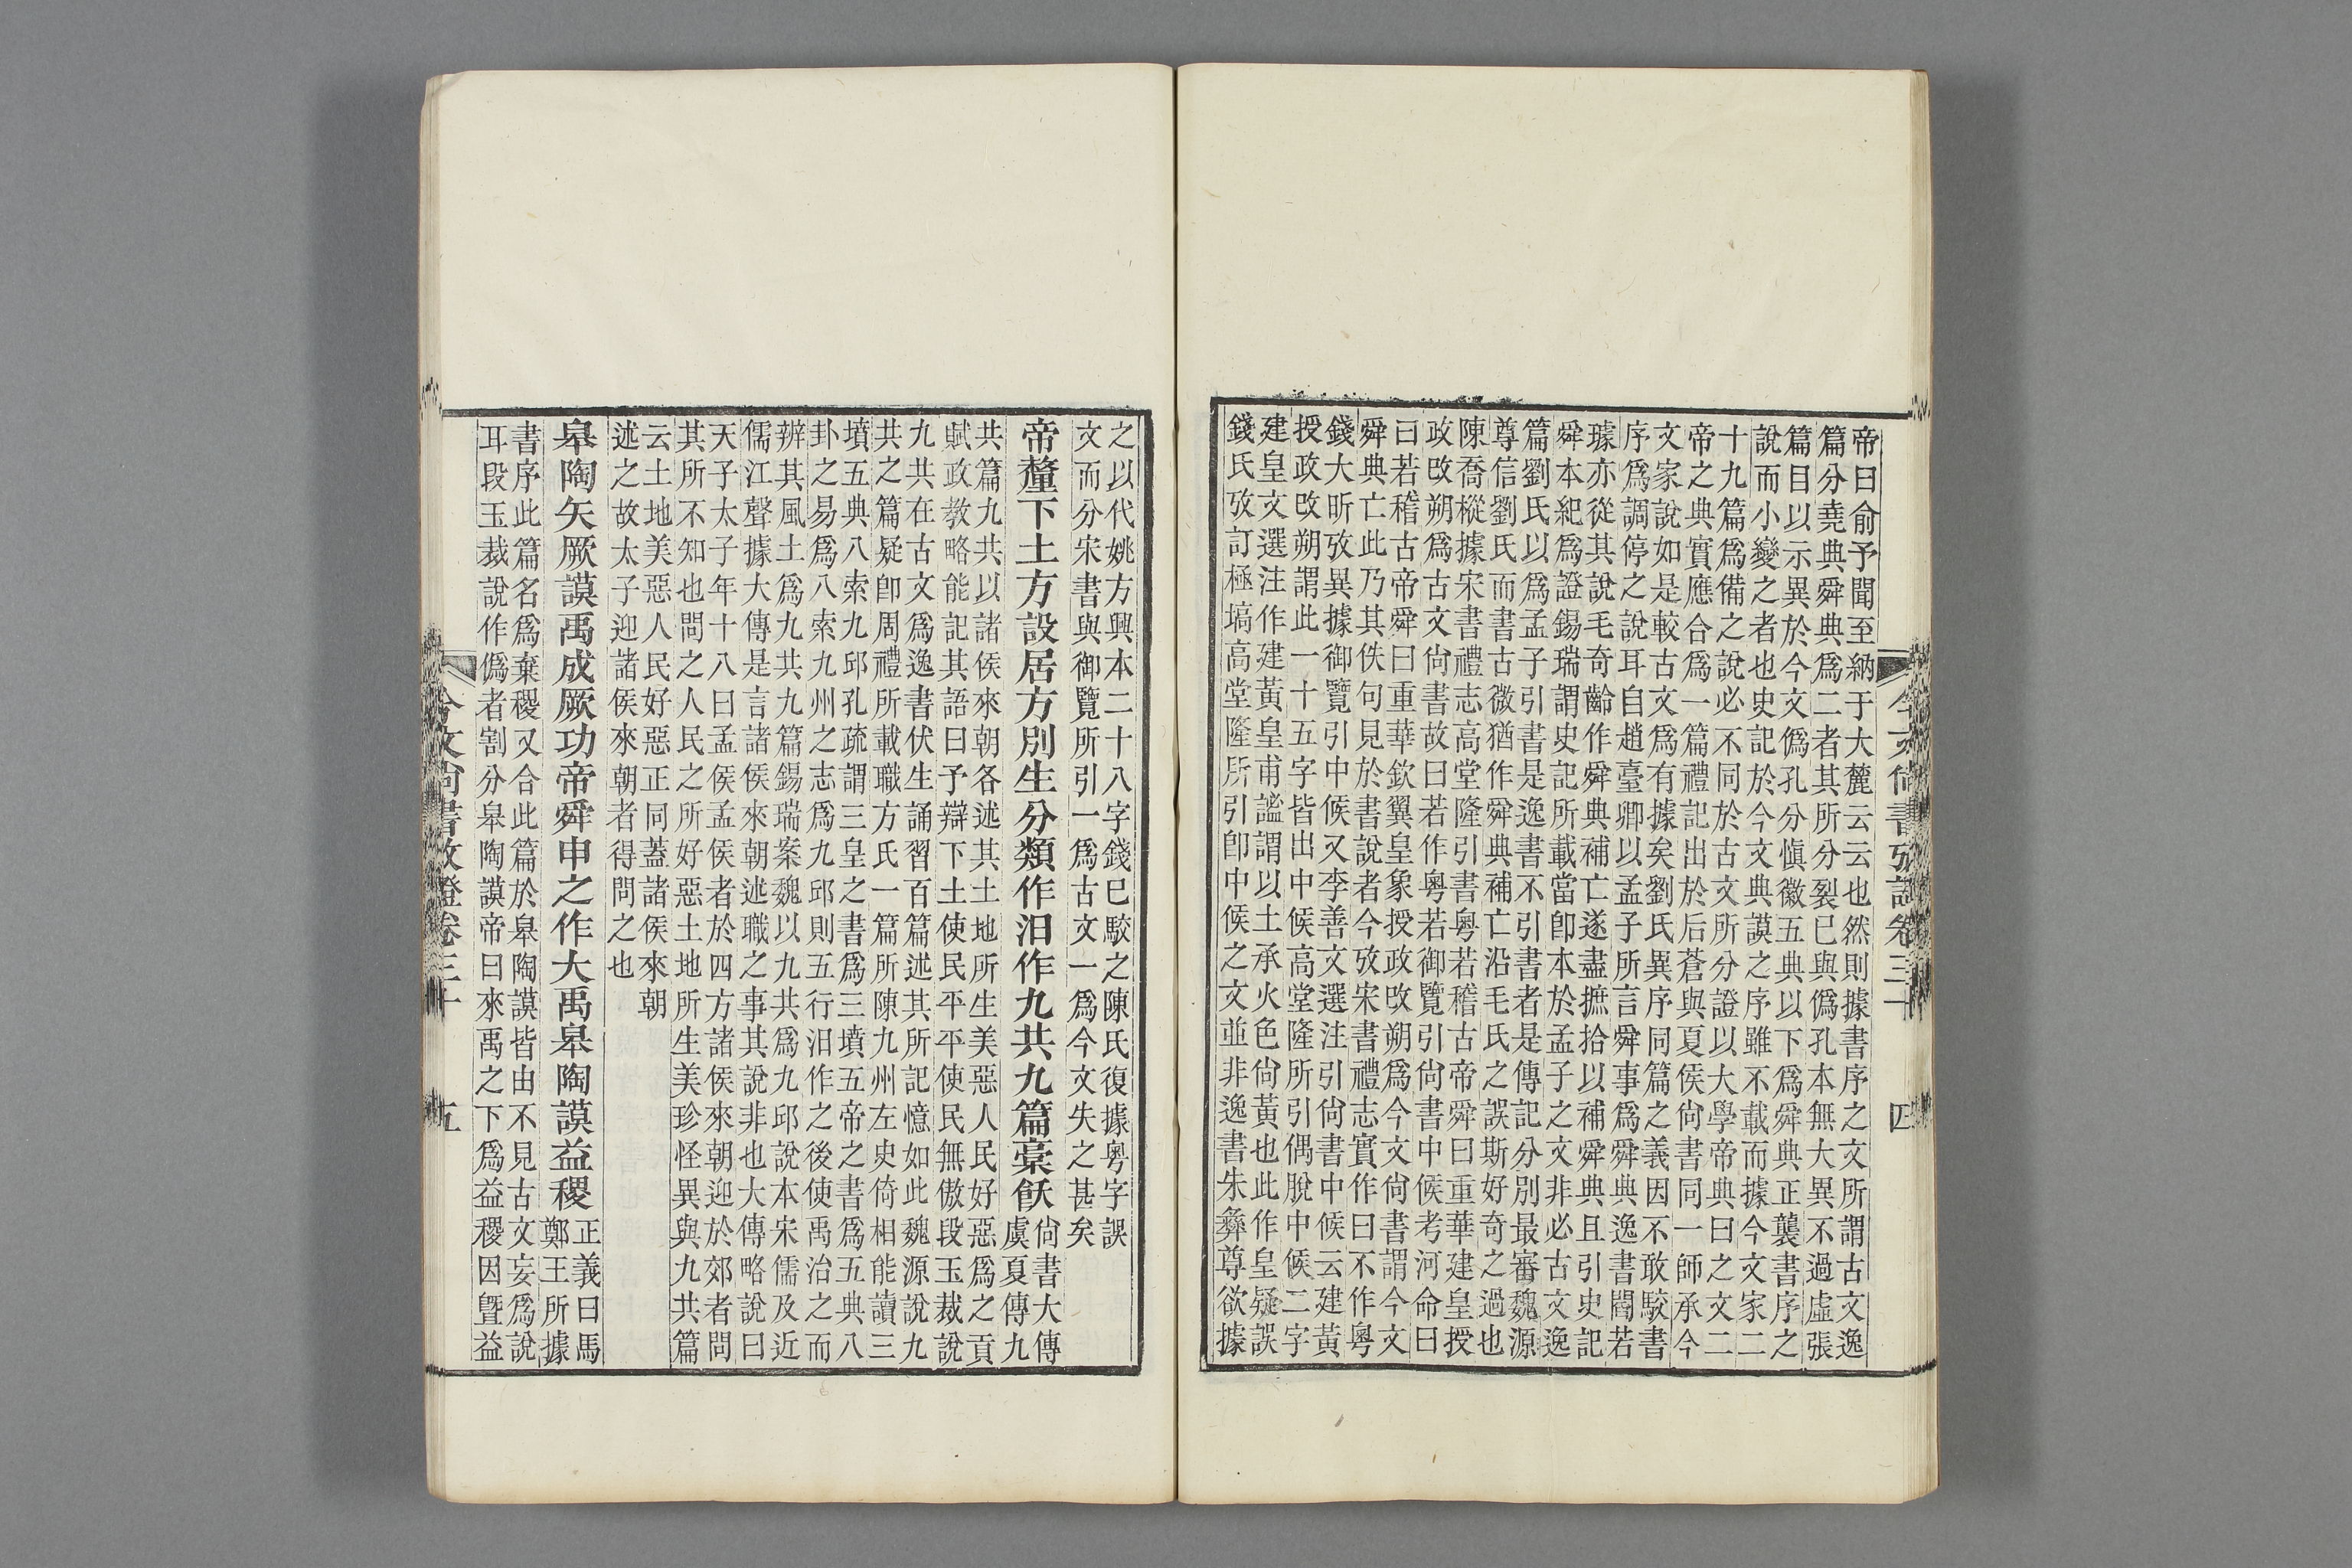 帝曰俞予聞至納于大麓云云也然則據書序之文所謂古文逸
篇分堯典舜典爲二者其所分裂已與僞孔本無大異不過虛張
篇目以示異於今文僞孔分愼徽五典以下爲舜典正襲書序之
說而小變之者也史記於今文典謨之序雖不載而據今文家二
十九篇爲備之說必不同於古文所分證以大學帝典曰之文二
帝之典實應合爲一篇禮記出於后蒼與夏侯尙書同一師承今
文家說如是較古文爲有據矣劉氏異序同篇之義因不敢駮書
序爲調停之說耳自趙臺卿以孟子所言舜事爲舜典逸書閻若
璩亦從其說毛奇齡作舜典補亡遂盡摭拾以補舜典且引史記
舜本紀爲證錫瑞謂史記所載當卽本於孟子之文非必古文逸
篇劉氏以爲孟子引書是逸書不引書者是傳記分別最審魏源
尊信劉氏而書古微猶作舜典補亡沿毛氏之誤斯好奇之過也
陳喬樅據宋書禮志高堂隆引書粵若稽古帝舜曰重華建皇授
政攺朔爲古文尙書故曰若作粵若御覽引尙書中候考河命曰
曰若稽古帝舜曰重華欽翼皇象授政攺朔爲今文尙書謂今文
舜典亡此乃其佚句見於書說者今攷宋書禮志實作曰不作粵
錢大昕攷異據御覽引中候又李善文選注引尙書中候云建黃
授政攺朔謂此一十五字皆出中候高堂隆所引偶脫中候二字
建皇文選注作建黃皇甫謐謂以土承火色尙黃也此作皇疑誤
錢氏攷訂極塙高堂隆所引卽中候之文並非逸書朱彝尊欲據
今文尙書攷證卷三十
四
之以代姚方興本二十八字錢已駮之陳氏復據粵字誤
文而分宋書與御覽所引一爲古文一爲今文失之甚矣
帝釐下土方設居方別生分類作汩作九共九篇槀飫
尙書大傳
虞夏傳九
共篇九共以諸侯來朝各述其土地所生美惡人民好惡爲之貢
賦政敎略能記其語曰予辯下土使民平平使民無傲段玉裁說
九共在古文爲逸書伏生誦習百篇述其所記憶如此魏源說九
共之篇疑卽周禮所載職方氏一篇所陳九州左史倚相能讀三
墳五典八索九邱孔疏謂三皇之書爲三墳五帝之書爲五典八
卦之易爲八索九州之志爲九邱則五行汩作之後使禹治之而
辨其風土爲九共九篇錫瑞案魏以九共爲九邱說本宋儒及近
儒江聲據大傳是言諸侯來朝述職之事其說非也大傳略說曰
天子太子年十八曰孟侯孟侯者於四方諸侯來朝迎於郊者問
其所不知也問之人民之所好惡土地所生美珍怪異與九共篇
云土地美惡人民好惡正同蓋諸侯來朝
述之故太子迎諸侯來朝者得問之也
皋陶矢厥謨禹成厥功帝舜申之作大禹皋陶謨益稷
正義曰馬
鄭王所據
書序此篇名爲棄稷又合此篇於皋陶謨皆由不見古文妄爲說
耳段玉裁說作僞者割分皋陶謨帝曰來禹之下爲益稷因曁益
今文尙書攷證卷三十
五